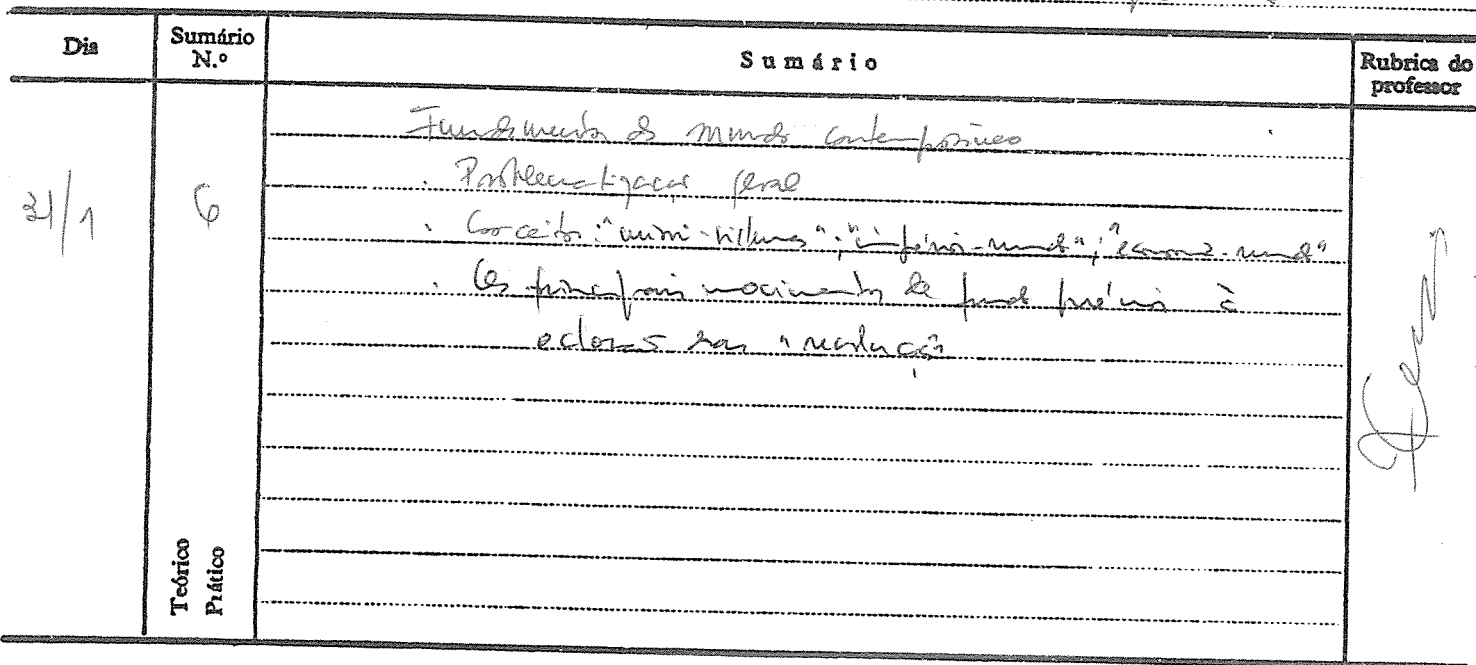 Dia
Sumário N.º
Sumário
Rubrica do professor
31/1
6
Fundamentos do mundo contemporâneo
. Problematização geral
. Conceitos: "mini-sistemas"; "império-mundo"; "economia-mundo"
. Os principais movimentos de fundo prévios à
eclosão "revolução"
Teórico
Prático